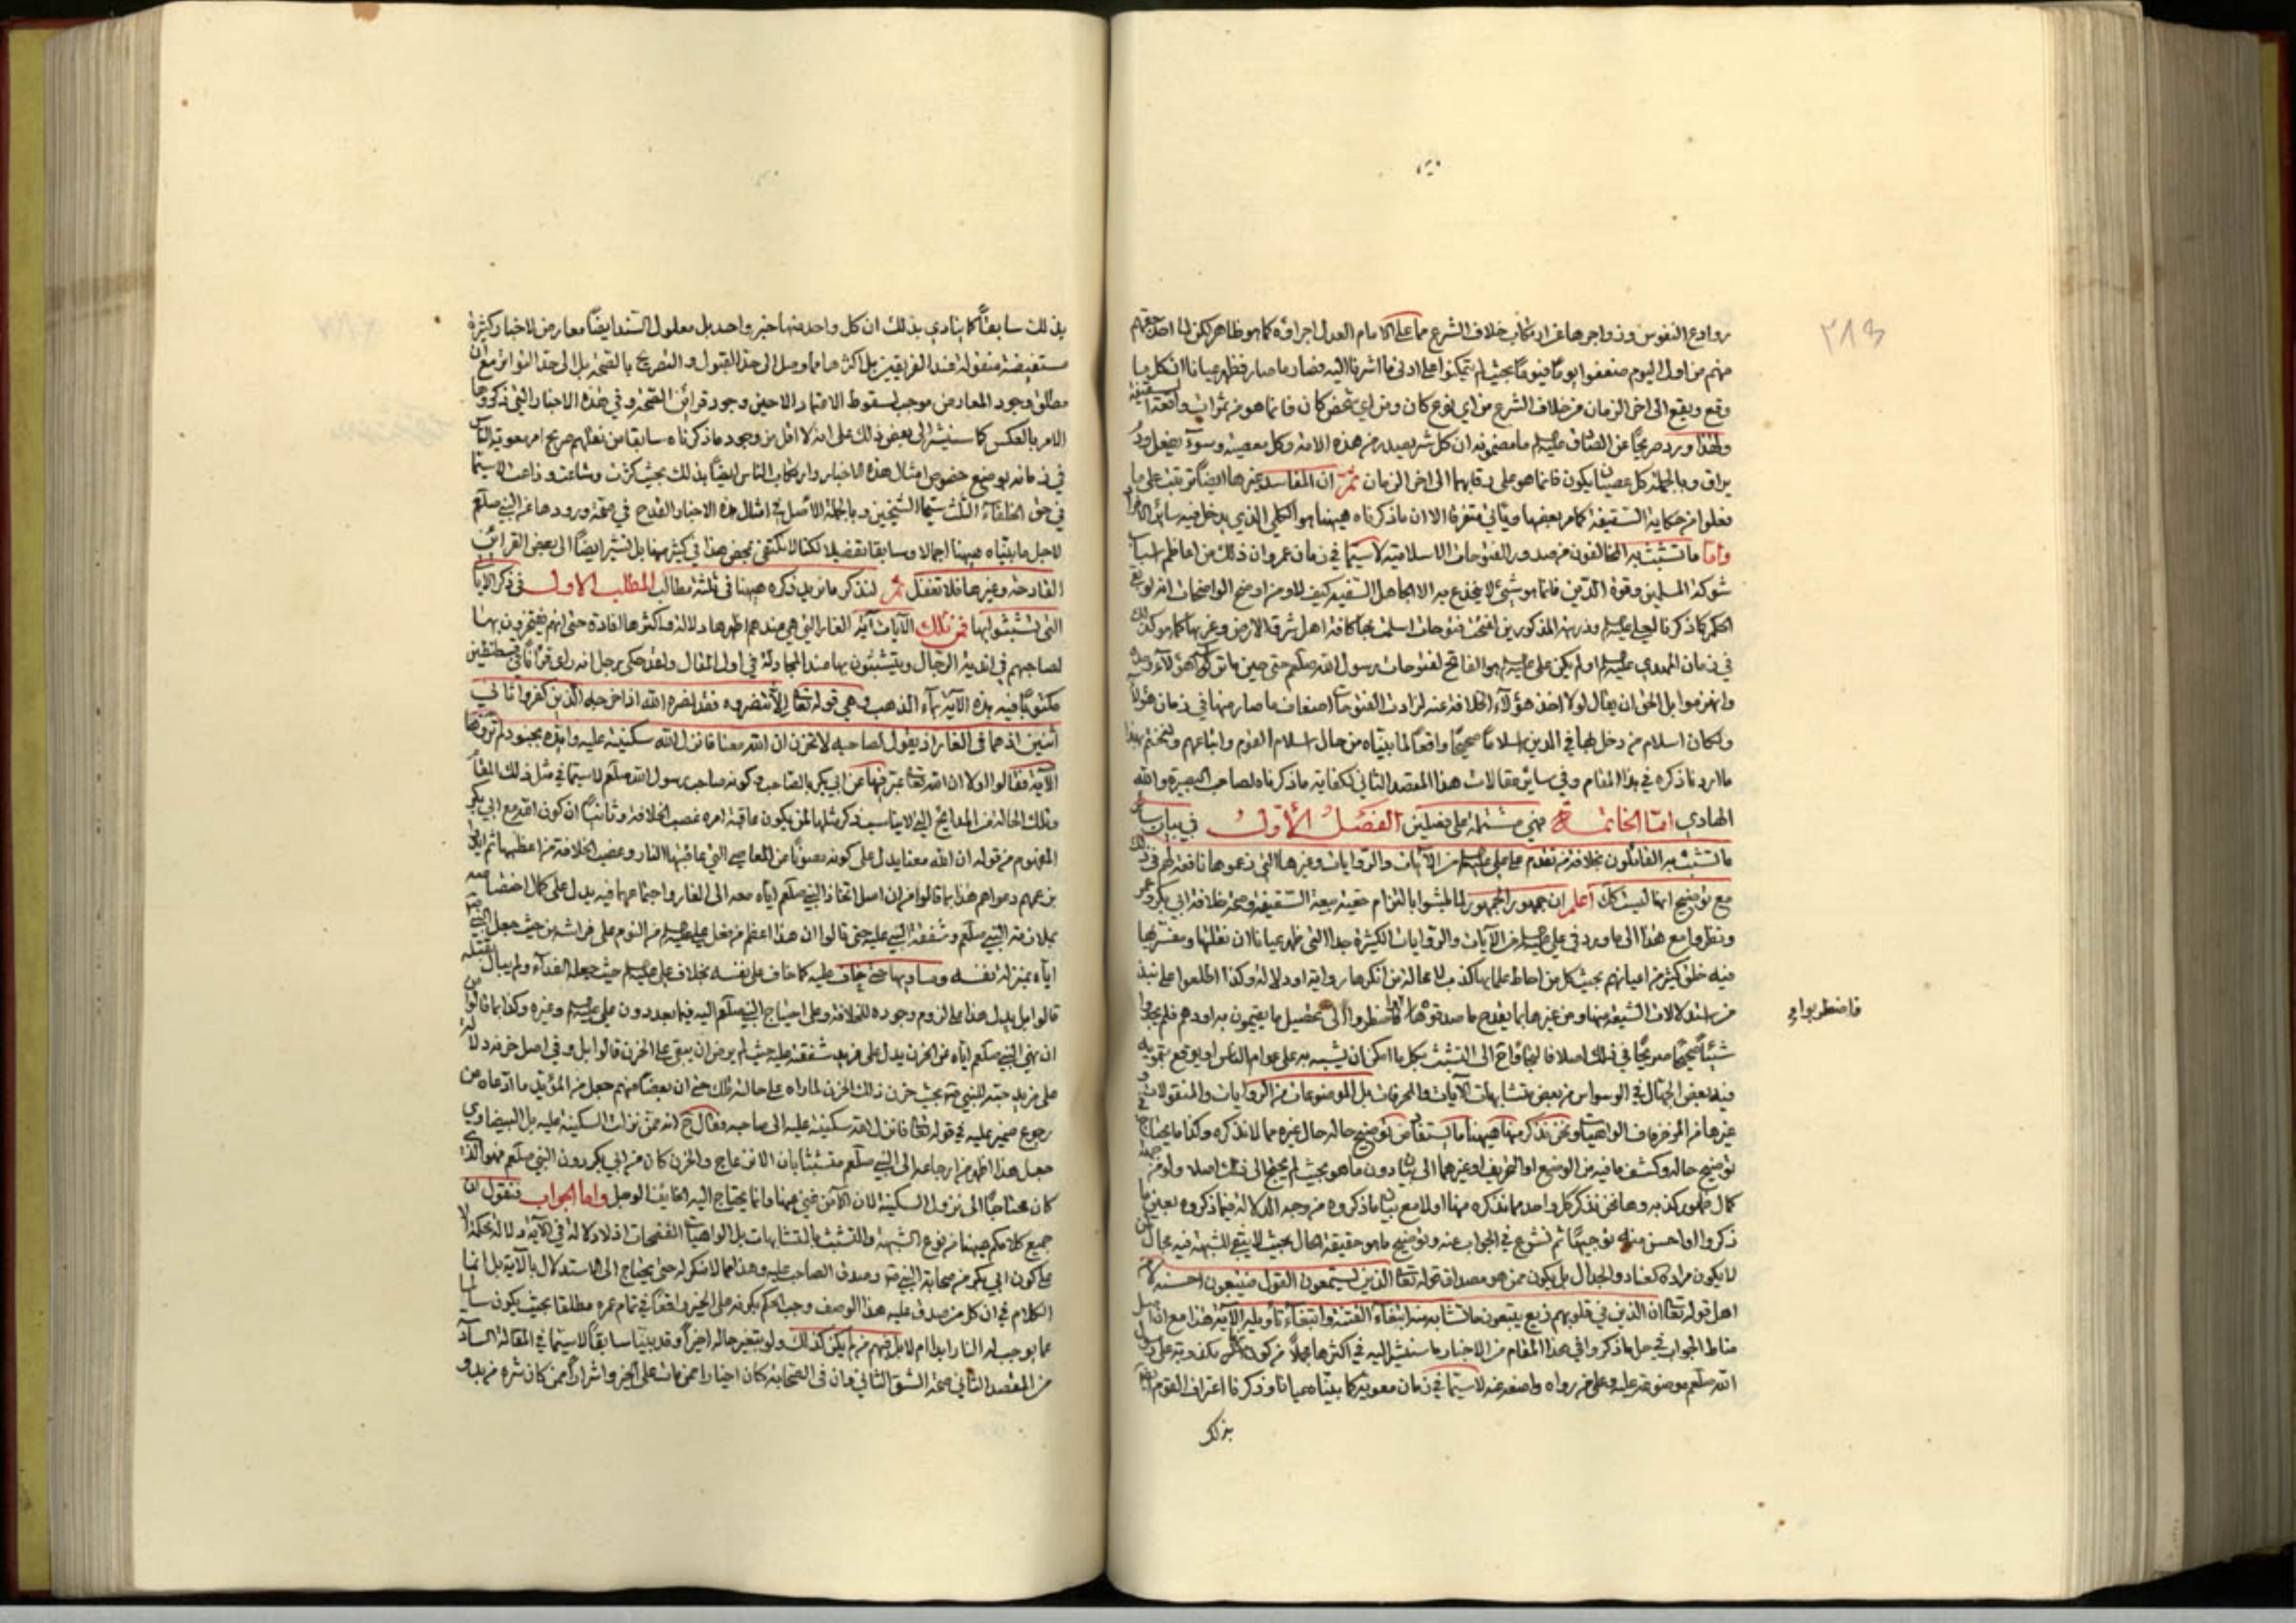 ٢٨٣
روادع النفوس وزواجرها عن ارتكاب خلاف الشرع مما على الامام العدل اجراؤه كما هو ظاهر لكن لما اخذ حقهم
منهم من اول اليوم ضعفوا يوما فيوما بحيث لم يتمكنوا على ادنى ما اشرنا اليه فصار ما صار فظهر عيانا ان كل ما
وقع ويقع الى اخر الزمان من خلاف الشرع من اي نوع كان ومن اي شخص كان فانما هو من ثمرات واقعة السقيفة
ولهذا ورد صريحا عن الصادق عليه السلم ما مضمونه ان كل شر يصدر من هذه الامة وكل معصية وسوء يفعل ودم
يراق وبالجملة كل عصيان يكون فانما هو على رقابهما الى اخر الزمان ثم ان المفاسد غيرها ايضا ترتبت على ما
فعلوا من حكاية السقيفة كما مر بعضها وياتي متفرقا الا ان ما ذكرناه هيهنا هو الكلي الذي يدخل فيه سائر
واما ما تشبث به المخالفون من صدور الفتوحات الاسلامية لا سيما في زمان عمر وان ذلك من اعاظم اسباب
شوكة المسلمين وقوة الدين فانما هو شيء لا ينخدع به الا الجاهل السفيه كيف لا ومن اوضح الواضحات انه لو
الحكم كما ذكرنا لعلي عليه السلم وذريته المذكورين لفتحت فتوحات اسلمت بها كافة اهل شرق الارض وغربها كما هو كذلك
في زمان المهدي عليه السلم اولم يكن علي عليه السلم هو الفاتح لفتوحات رسول الله صلعم حتى حين ما تركوا هؤلاء
وانهزموا بل الحق ان يقال لو لا اخذ هؤلاء الخلافة عنه لزادت الفتوحات اضعاف ما صار منها في زمان هؤلاء
ولكان اسلام من دخل بها في الدين اسلاما صحيحا واقعا لما بيناه من حال اسلام القوم واتباعهم ولنختم بهذا
ما اردنا ذكره في هذا المقام وفي سائر مقالات هذا المقصد الثاني لكفاية ما ذكرناه لصاحب البصيرة والله
الهادي اما الخاتمة فهي مشتملة على فصلين الفصل الأول في بيان
ما تشبث به القائلون بخلافة من تقدم على علي عليه السلم من الآيات والروايات وغيرها التي زعموها نافعة لهم في ذلك
مع توضيح انها ليست كك اعلم ان جمهور الجمهور لما ابتلوا بالتزام حقية بيعة السقيفة وصحة خلافة ابي بكر وعمر
ونظروا مع هذا الى ما ورد في علي عليه السلم من الآيات والروايات الكثيرة جدا التي ظهر عيانا ان نقلتها ومفسريها
فيه خلق كثير من اعيانهم بحيث كل من احاط علما بها كذب لا محالة من انكرها رواية او دلالة وكذا اطلعوا على نبذ
من استدلالات الشيعة منها ومن غيرها بما يقدح ما صدقوها فاضطروا الى تحصيل ما يقيمون به اودهم فلم يجدوا
فاضطربوا و
شيئا صحيحا صريحا في ذلك اصلا فالجاؤا ح الى التشبث بكل ما امكن ان يشبه به على عوام الناس او يوقع بتمويه
فيه بعض الجهال في الوسواس من بعض متشابهات الآيات والمحرفات بل الموضوعات من الروايات والمنقولات و
غيرها من المزخرفات الواهيات ونحن نذكر منها هيهنا ما يستفاد من توضيح حاله حال غيره مما لا نذكره وكذا ما يحتاج
توضيح حاله وكشف ما فيه من الوضع او التحريف او غيرهما الى بيان دون ما هو بحيث لم يحتج الى ذلك اصلا
كمال ظهور كذبه وها نحن نذكر كل واحد مما نذكره منها اولا مع بيان ما ذكروه من وجه الدلالة فيما ذكروه بعين ما
ذكروا او احسن منه توجيها ثم نشرع في الجواب عنه وتوضيح ما هو حقيقة الحال بحيث لا يبقى للشبهة فيه مجال
لا يكون مراده العناد والجدال بل يكون ممن هو مصداق قوله تعالى الذين يستمعون القول فيتبعون احسنه
اهل قوله تعالى ان الذين في قلوبهم زيغ يتبعون ما تشابه منه ابتغاء الفتنة وابتغاء تأويله الآية هذا مع ان
مناط الجواب في حل ما ذكروا في هذا المقام من الاخبار ما سنشير اليه في اكثرها مجملا من كون مكذوبة على رسول
الله صلعم موضوعة عليه وعلى من رواه واضعه لا سيما في زمان معوية كما بيناه عيانا وذكرنا اعتراف القوم ايضا
بذلك
بذلك سابقا كما ينادي بذلك ان كل واحد منها خبر واحد بل معلول السند ايضا معارض لاخبار كثيرة
مستفيضة منقولة عند الفريقين بل اكثرها مما وصل الى حد القبول والتصريح بالصحة بل الى حد التواتر مع ان
مطلق وجود المعارض موجب لسقوط الاعتبار الا حين وجود قرائن الصحة وفي هذه الاخبار التي ذكروها
الامر بالعكس كما سنشير الى بعض ذلك على انه لا اقل من وجود ما ذكرناه سابقا من نقلهم صريح امر معوية الناس
في زمانه بوضع خصوص امثال هذه الاخبار وارتكاب الناس ايضا بذلك بحيث كثرت وشاعت وذاعت لا سيما
في حق الخلفاء الثلث سيما الشيخين وبالجملة الاصل في امثال هذه الاخبار القدح في صحة ورودها عن النبي صلعم
لاجل ما بيناه هيهنا اجمالا وسابقا تفصيلا لكنا لا نكتفي بمحض هذا في كثير منها بل نشير ايضا الى بعض القرائن
القادحة وغيرها فلا تغفل ثم لنذكر ما نريد ذكره هيهنا في ثلثة مطالب المطلب الاول في ذكر الايات
التي تشبثوا بها فمن تلك الآيات آية الغار التي هي عندهم اظهرها دلالة واكثرها افادة حتى انهم يفتخرون بها
لصاحبهم في اندية الرجال ويتشبثون بها عند المجادلة في اول المقال ولقد حكى رجل انه راى قرآنا في قسطنطين
مكتوبا فيه هذه الآية بماء الذهب وهي قوله تعالى إلا تنصروه فقد نصره الله اذ اخرجه الذين كفروا ثاني
اثنين اذ هما في الغار اذ يقول لصاحبه لا تحزن ان الله معنا فانزل الله سكينته عليه وايده بجنود لم تروها
الآية فقالوا اولا ان الله تعالى عبر فيها عن ابي بكر بالصاحب وكونه صاحب رسول الله صلعم لا سيما في مثل ذلك المقام
وتلك الحالة من المدايح التي لا يناسب ذكر مثلها لمن يكون عاقبة امره غصب الخلافة وثانيا ان كون الله مع ابي بكر
المفهوم من قوله ان الله معنا يدل على كونه مصونا عن المعاصي التي عاقبتها النار وغصب الخلافة من اعظمها ثم
بزعمهم ودعواهم هذا بما قالوا من ان اصل اتخاذ النبي صلعم اياه معه الى الغار واجتماعهما فيه يدل على كمال اختصاصه
بملازمة النبي صلعم وشفقة النبي عليه حتى قالوا ان هذا اعظم من فعل علي عليه السلم من النوم على فراشه من حيث جعل النبي
اياه بمنزلة نفسه ومساويها حتى خاف عليه كما خاف على نفسه بخلاف علي عليه السلم حيث جعله الفداء ولم يبال
قالوا بل يدل هذا على لزوم وجوده للخلافة وعلى احتياج النبي صلعم اليه فيما بعد دون علي عليه السلم وغيره وكذا بما قالوا من
ان نهي النبي صلعم اياه عن الحزن يدل على مزيد شفقته عليه حيث لم يرض ان يبقى على الحزن قالوا بل وفي اصل حزنه دلالة
على مزيد حبته للنبي ص بحيث حزن ذلك الحزن لما راه على حالة تلك حتى ان بعضا منهم جعل من المؤيد ما ادعاه من
رجوع ضمير عليه في قوله تعالى فانزل الله سكينته عليه الى صاحبه فقال ح انه ممن نزلت السكينة عليه بل البيضاوي
جعل هذا اظهر من ارجاعه الى النبي صلعم متشبثا بان الانزعاج والحزن كان من ابي بكر دون النبي صلعم فهو الذي
كان محتاجا الى نزول السكينة لان الآمن غني عنها وانما يحتاج اليه الخايف الوجل واما الجواب فنقول ان
جميع كلامكم هيهنا من نوع الشبهة والتشبث بالمتشابهات بل الواهيات اذ لا دلالة في الآية دلالة محكمة الا
على كون ابي بكر من صحابة النبي ص وصدق الصاحب عليه وهذا مما لا ننكر له حتى يحتاج الى الاستدلال بالآية بل انما
الكلام في ان كل من صدق عليه هذا الوصف وجب الحكم بكونه على الخير واقعا في تمام عمره مطلقا بحيث يكون سالما
عما يوجب له النار ابدا ام لا بل فيهم من لم يكن كذلك ولو بتغير حاله اخيرا وقد بينا سابقا لا سيما في المقالة
من المقصد الثاني صحة الشق الثاني وان في الصحابة كان اخيارا ممن مات على الخير واشرارا ممن كان شره